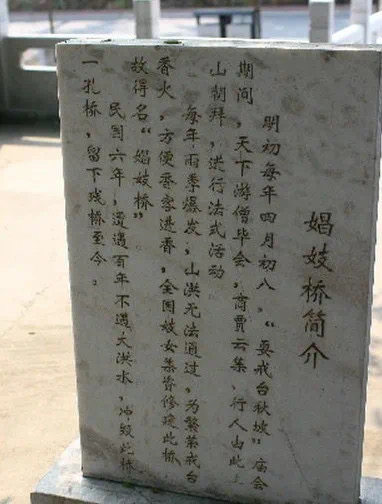 娼妓桥简介
明初每年四月初八，“耍戒台秋坡”庙会
期间，天下游僧毕会，商贾云集，行人由此上
山朝拜，进行法式活动
每年雨季爆发，山洪无法通过，为繁荣戒台
香火，方便香客进香，全国妓女集资修建此桥
故得名“娼妓桥”
民国六年，遭遇百年不遇大洪水，冲毁此桥
一孔桥，留下残桥至今。